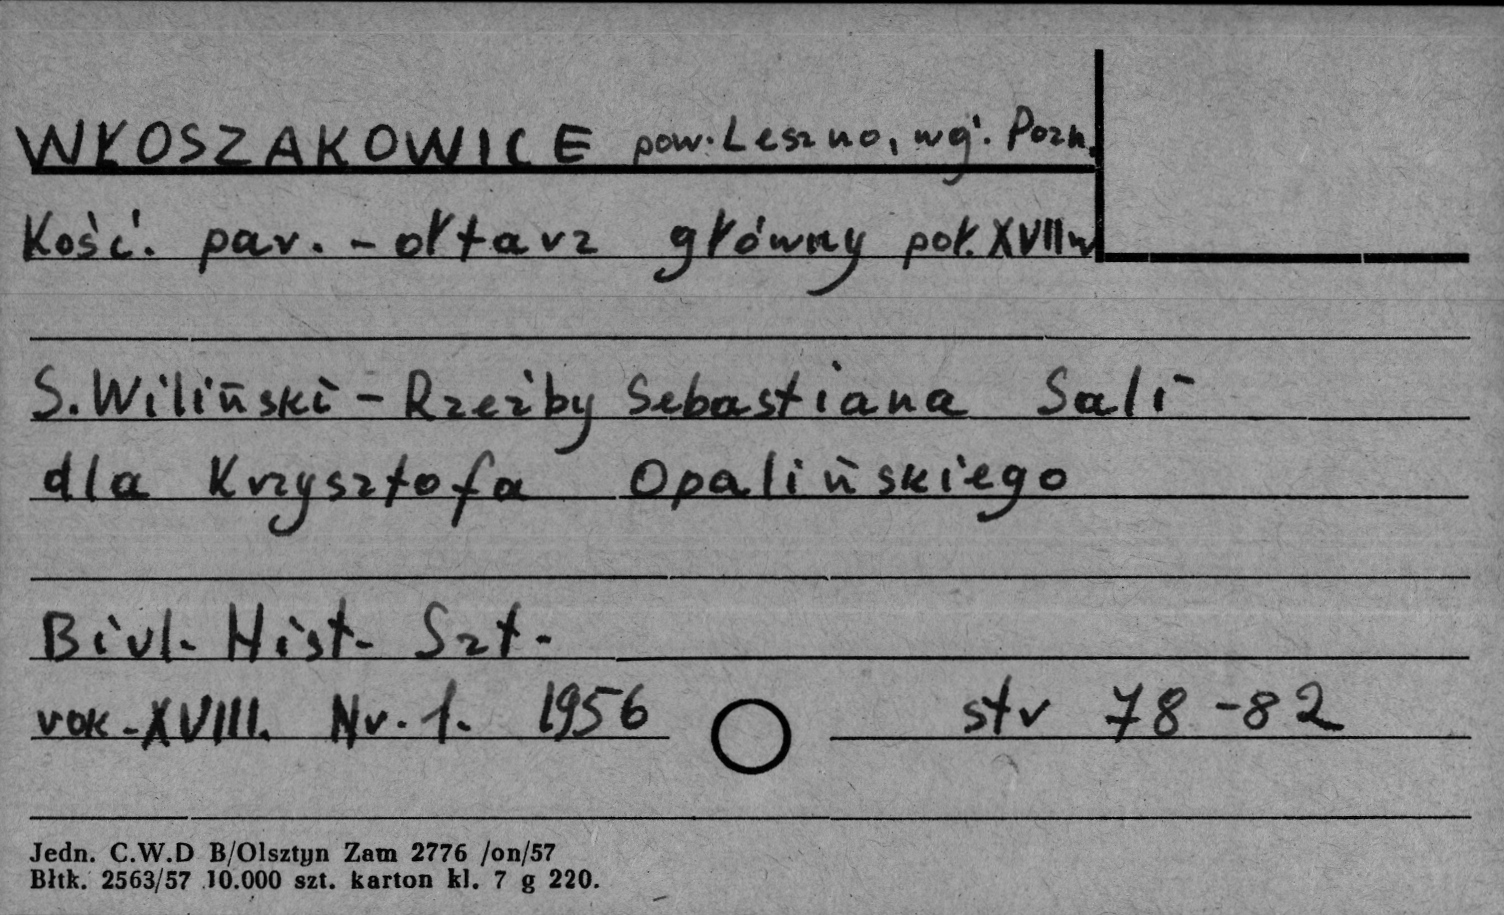 WŁOSZAKOWICE pow. Leszno, woj. Pozn.
Kość. par. - ołtarz główny poł. XVII w
S. Wiliński - Rzeźby Sebastiana Sali
dla Krzysztofa Opalińskiego
Biul. Hist. Szt.
rok - XVIII. Nr. 1. 1956 str 78-82
Jedn. C.W.D B/Olsztyn Zam 2776 /on/57
Błtk. 2563/57 10.000 szt. karton kl. 7 g 220.